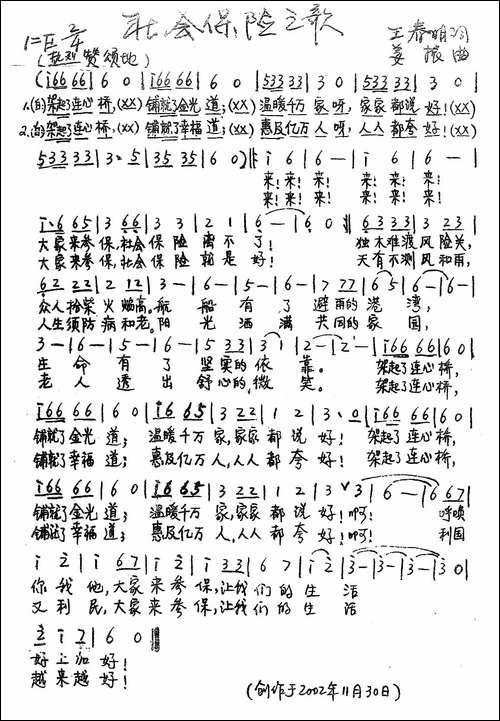 社会保险之歌
1=E 2/4
王春明词
(热烈 赞颂地)
姜振曲
(i66 66|6 0|i66 66|6 0|533 33|3 0|533 33|3 0|
1.(白)架起了连心桥,(XX)铺就了金光道;(XX)温暖千万家呀,家家都说好!(XX)
2.(白)架起了连心桥,(XX)铺就了幸福道;(XX)惠及亿万人呀,人人都夸好!(XX)
533 33|3·5|35 35|6 0)|:i 6|6-|i 6|6-|
来!来!来!来!来!来!
来!来!来!来!来!来!
i·6 65|3 66|3 3|2 1|6-|6 0|6333|3 23|
大家来参保,社会保险离不了!独木难渡风险关,
大家来参保,社会保险就是好!天有不测风和雨,
62 22|2 12|3-|6-|5-|6-|7 77|6 5|6-|6-|
众人拾柴火焰高。航船有了避雨的港湾,
人生须防病和老。阳光洒满共同的家园,
3-|6-|5-|6-|5 33|3 1|2-|2-|i66 66|6 0|
生命有了坚实的依靠。架起了连心桥,
老人透出舒心的微笑。架起了连心桥,
i66 66|6 0|i6 65|3 22|1 2|3·0|i66 66|6 0|
铺就了金光道;温暖千万家,家家都说好!架起了连心桥,
铺就了幸福道;惠及亿万人,人人都夸好!架起了连心桥,
i66 66|6 0|i6 65|3 22|1 2|3 ∨ 3|6-|6 67|
铺就了金光道;温暖千万家,家家都说好!啊!呼唤
铺就了幸福道;惠及亿万人,人人都夸好!啊!利国
i 2|i 67|i 2|i 33|6 7|i 2|3-|3-|3-|3 0|
你我他,大家来参保,让我们的生活
又利民,大家来参保,让我们的生活
2 i 7|6 0||
好上加好!
越来越好!
(创作于2002年11月30日)